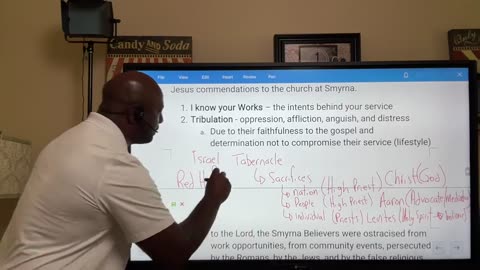 CANDY AND SODA
CANDY AND SODA
Jesus commendations to the church at Smyrna.
1. I know your Works – the intents behind your service
2. Tribulation - oppression, affliction, anguish, and distress
a. Due to their faithfulness to the gospel and
determination not to compromise their service (lifestyle)
Israel Tabernacle
Red H
↳ Sacrifices
Christ (God)
↳ nation (High Priest)
↳ People (High Priest) Aaron (Advocate/Mediator)
↳ individual (Priests) Levites (Holy Spirit - believers)
to the Lord, the Smyrna Believers were ostracised from
work opportunities, from community events, persecuted
by the Romans, by the Jews, and by the false religious